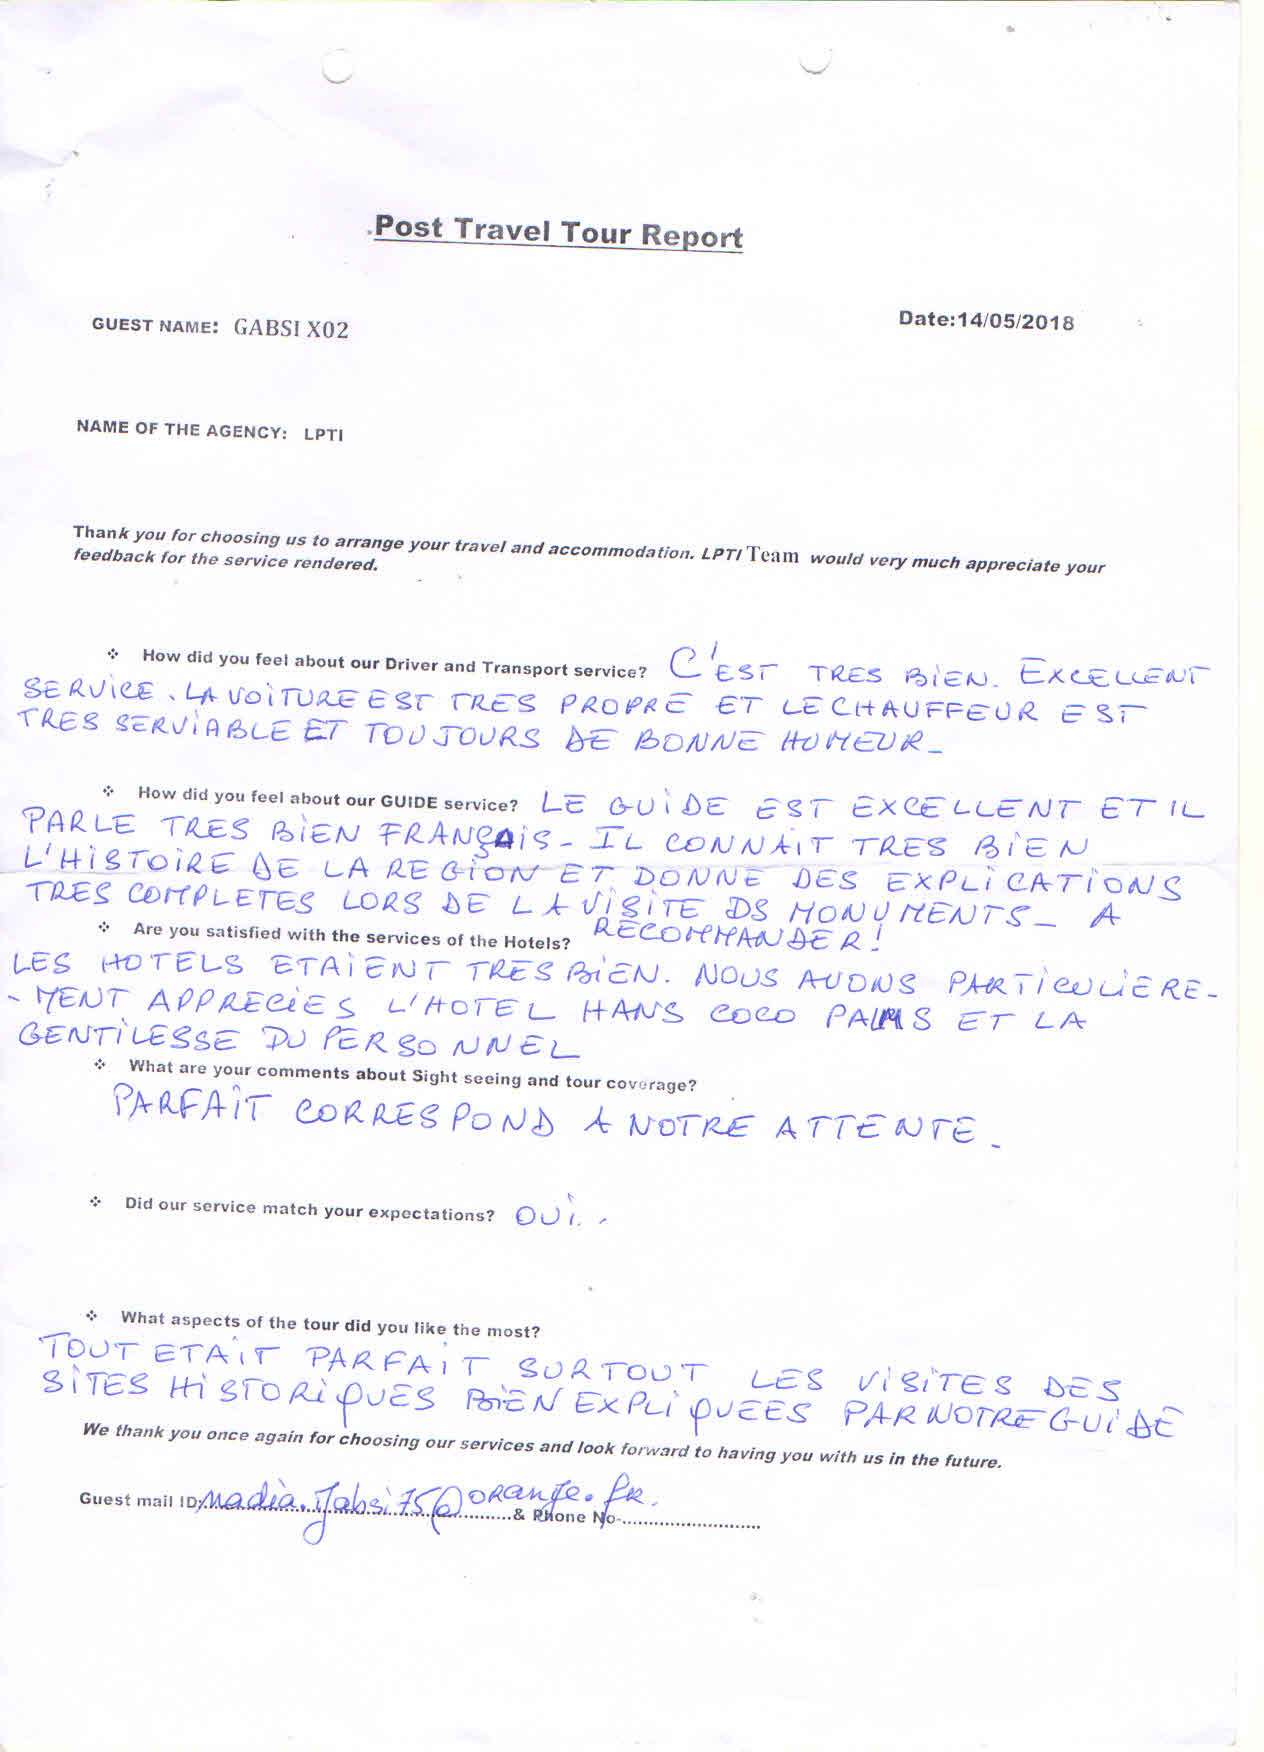 .Post Travel Tour Report
GUEST NAME: GABSI X02
Date:14/05/2018
NAME OF THE AGENCY: LPTI
Thank you for choosing us to arrange your travel and accommodation. LPTI Team would very much appreciate your
feedback for the service rendered.
❖ How did you feel about our Driver and Transport service? C'EST TRES BIEN. EXCELLENT
SERVICE. LA VOITURE EST TRES PROPRE ET LE CHAUFFEUR EST
TRES SERVIABLE ET TOUJOURS DE BONNE HUMEUR_
❖ How did you feel about our GUIDE service? LE GUIDE EST EXCELLENT ET IL
PARLE TRES BIEN FRANÇAIS_ IL CONNAIT TRES BIEN
L'HISTOIRE DE LA REGION ET DONNE DES EXPLICATIONS
TRES COMPLETES LORS DE LA VISITE DS MONUMENTS_ A
RECOMMANDER!
❖ Are you satisfied with the services of the Hotels?
LES HOTELS ETAIENT TRES BIEN. NOUS AVONS PARTICULIERE-
-MENT APPRECIES L'HOTEL HANS COCO PALMS ET LA
GENTILESSE DU PERSONNEL
❖ What are your comments about Sight seeing and tour coverage?
PARFAIT CORRESPOND A NOTRE ATTENTE_
❖ Did our service match your expectations? OUI.
❖ What aspects of the tour did you like the most?
TOUT ETAIT PARFAIT SURTOUT LES VISITES DES
SITES HISTORIQUES BIEN EXPLIQUEES PAR NOTRE GUIDE
We thank you once again for choosing our services and look forward to having you with us in the future.
Guest mail ID: nadia.gabsi75@orange.fr. & Phone No-..........................